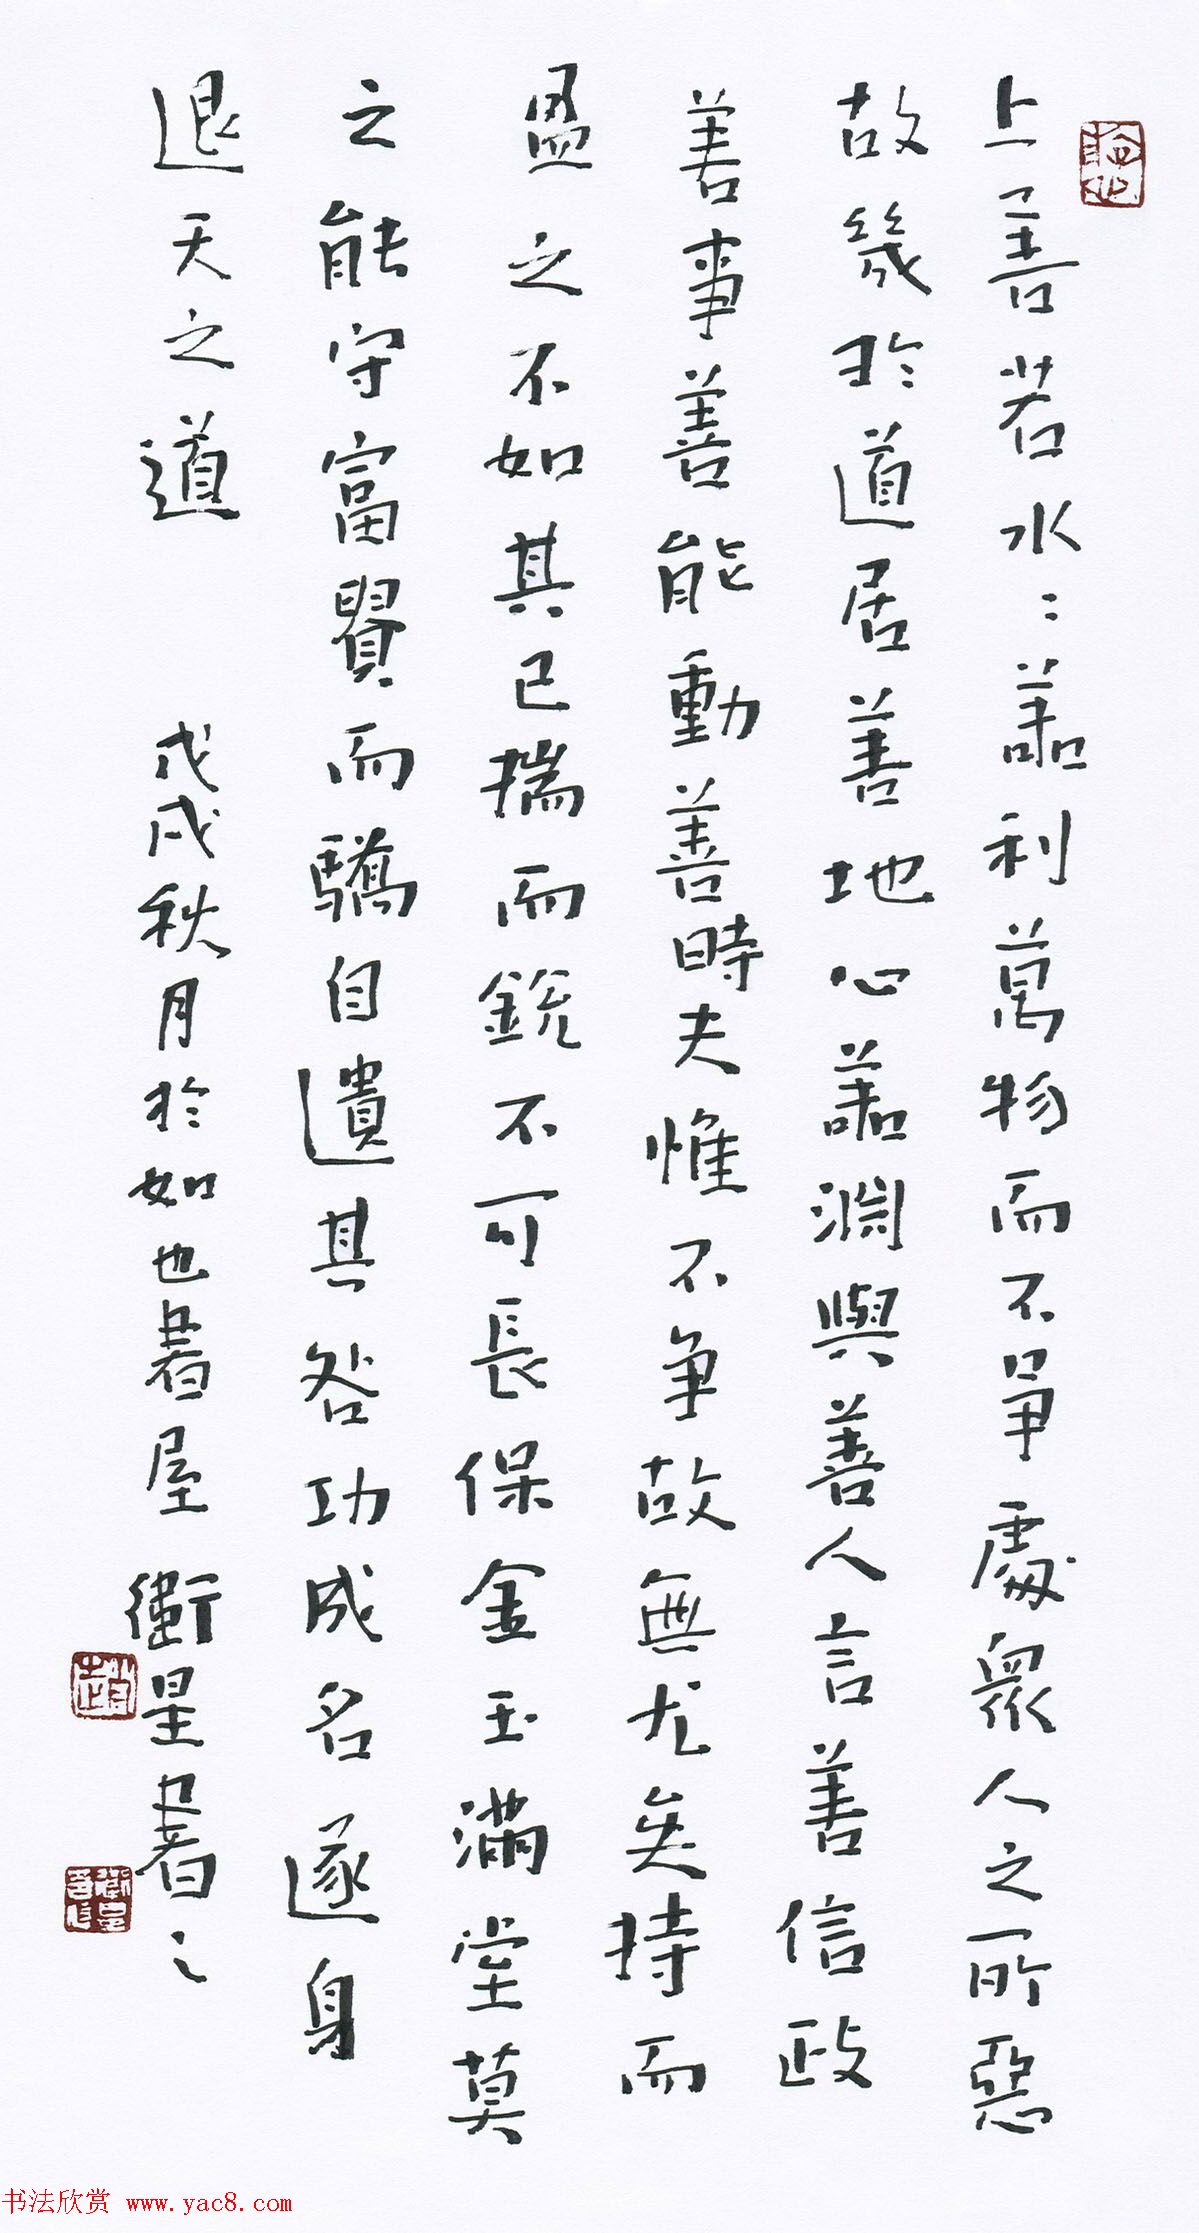 上善若水〻善利萬物而不爭處眾人之所惡
故幾於道居善地心善淵與善人言善信政
善事善能動善時夫惟不争故無尤矣持而
盈之不如其已揣而銳不可長保金玉滿堂莫
之能守富貴而驕自遺其咎功成名遂身
退天之道
戊戌秋月於如也書屋 衛星書之
趙
书法欣赏 www.yac8.com